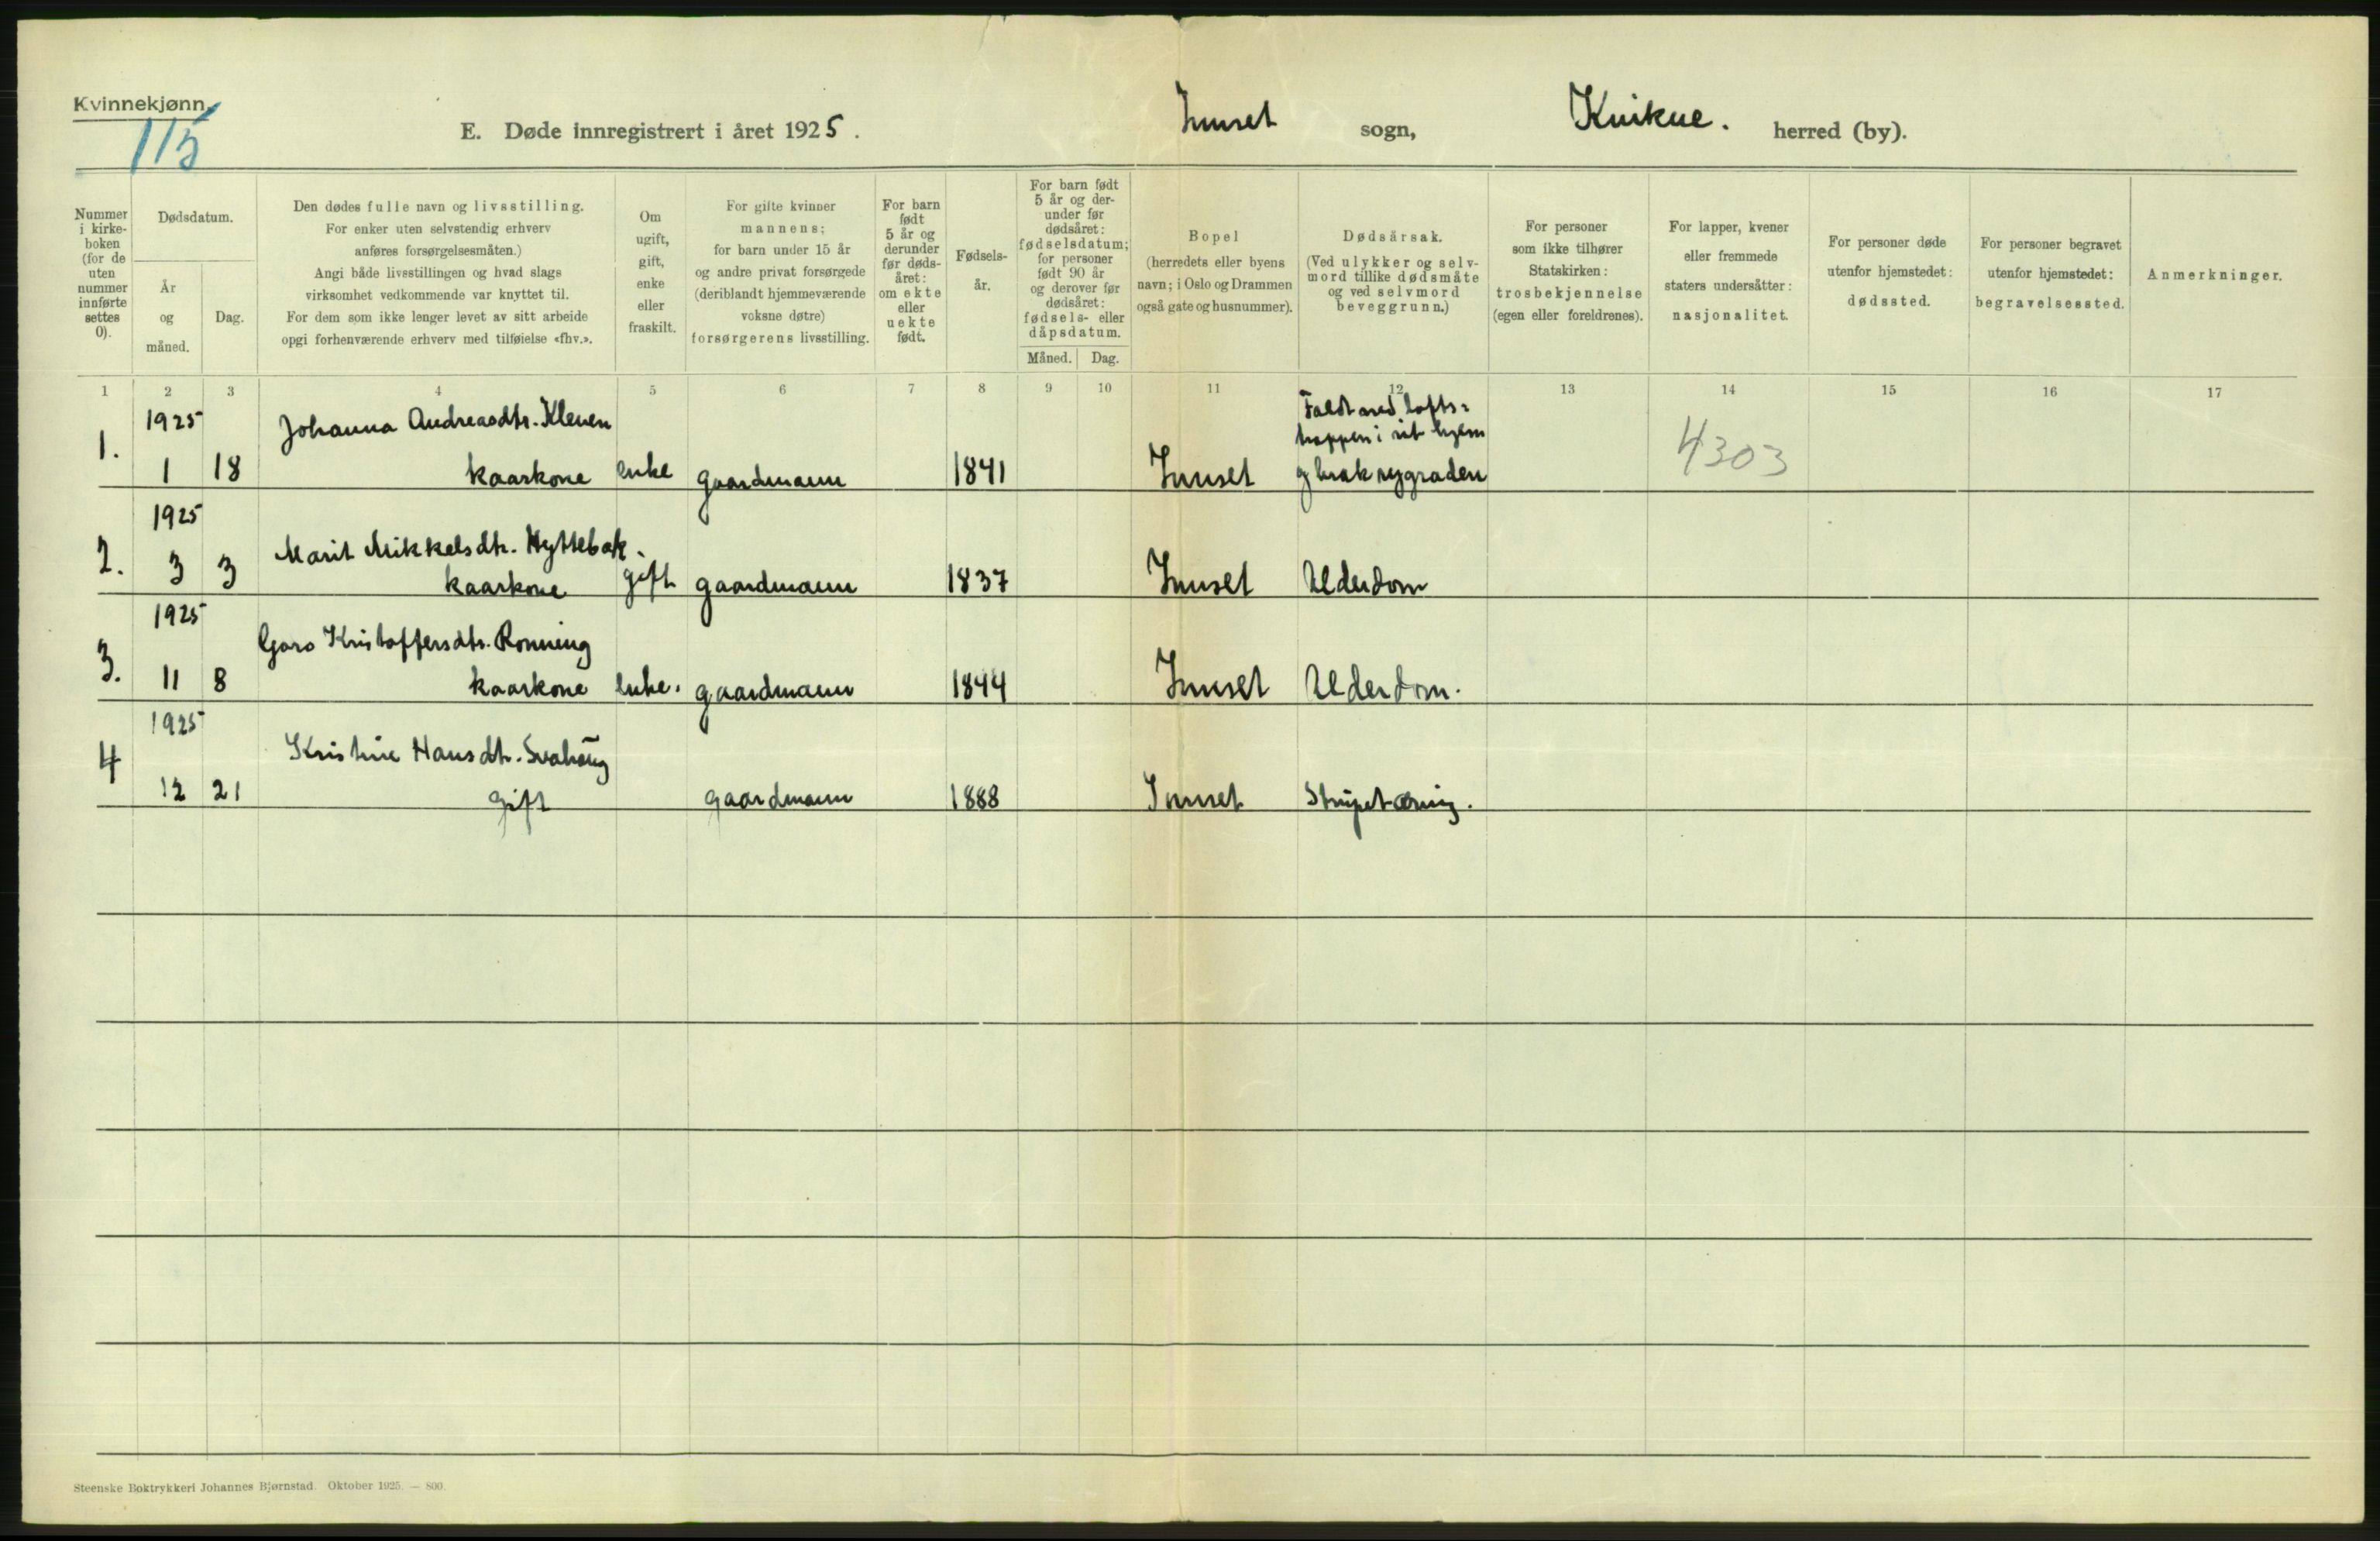 Kvinnekjønn.
115
E. Døde innregistrert i året 1925.
Innset sogn,
Kvikne. herred (by).
Nummer i kirkeboken (for de uten nummer innførte settes 0).
Dødsdatum.
År og måned.
Dag.
Den dødes fulle navn og livsstilling.
For enker uten selvstendig erhverv
anføres forsørgelsesmåten.)
Angi både livsstillingen og hvad slags
virksomhet vedkommende var knyttet til.
For dem som ikke lenger levet av sitt arbeide
opgi forhenværende erhverv med tilføielse «fhv.».
Om ugift, gift, enke eller fraskilt.
For gifte kvinner
mannens;
for barn under 15 år
og andre privat forsørgede
(deriblandt hjemmeværende
voksne døtre)
forsørgerens livsstilling.
For barn født 5 år og derunder før dødsåret: om ekte eller uekte født.
Fødselsår.
For barn født
5 år og der-
under før
dødsåret:
fødselsdatum;
for personer
født 90 år
og derover før
dødsåret:
fødsels- eller
dåpsdatum.
Måned. Dag.
Bopel
(herredets eller byens
navn; i Oslo og Drammen
også gate og husnummer).
Dødsårsak.
(Ved ulykker og selv-
mord tillike dødsmåte
og ved selvmord
beveggrunn.)
For personer
som ikke tilhører
Statskirken:
trosbekjennelse
(egen eller foreldrenes).
For lapper, kvener
eller fremmede
staters undersåtter:
nasjonalitet.
For personer døde
utenfor hjemstedet:
dødssted.
For personer begravet
utenfor hjemstedet:
begravelsessted.
Anmerkninger.
1 2 3 4 5 6 7 8 9 10 11 12 13 14 15 16 17
1925 Johanna Andreasdtr. Kleven Faldt ned lofts=
trappen i sit hjem
1. 1 18 kaarkone enke gaardmann 1841 Innset og brak rygraden 4303
1925
2. Marit Mikkelsdtr. Hyttebak.
3 3 kaarkone gift gaardmann 1837 Innset Alderdom
1925
3. Goro Kristoffersdtr. Ronning
11 8 kaarkone enke. gaardmann 1844 Innset Alderdom.
1925
4 Kristine Hansdtr.
12 21 gift gaardmann 1888 Innset Strupetæring.
Steenske Boktrykkeri Johannes Bjørnstad. Oktober 1925. — 800.